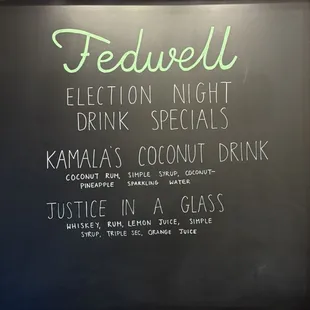 Fedwell
ELECTION NIGHT
DRINK SPECIALS
KAMALA'S COCONUT DRINK
COCONUT RUM, SIMPLE SYRUP, COCONUT-
PINEAPPLE SPARKLING WATER
JUSTICE IN A GLASS
WHISKEY, RUM, LEMON JUICE, SIMPLE
SYRUP, TRIPLE SEC, ORANGE JUICE